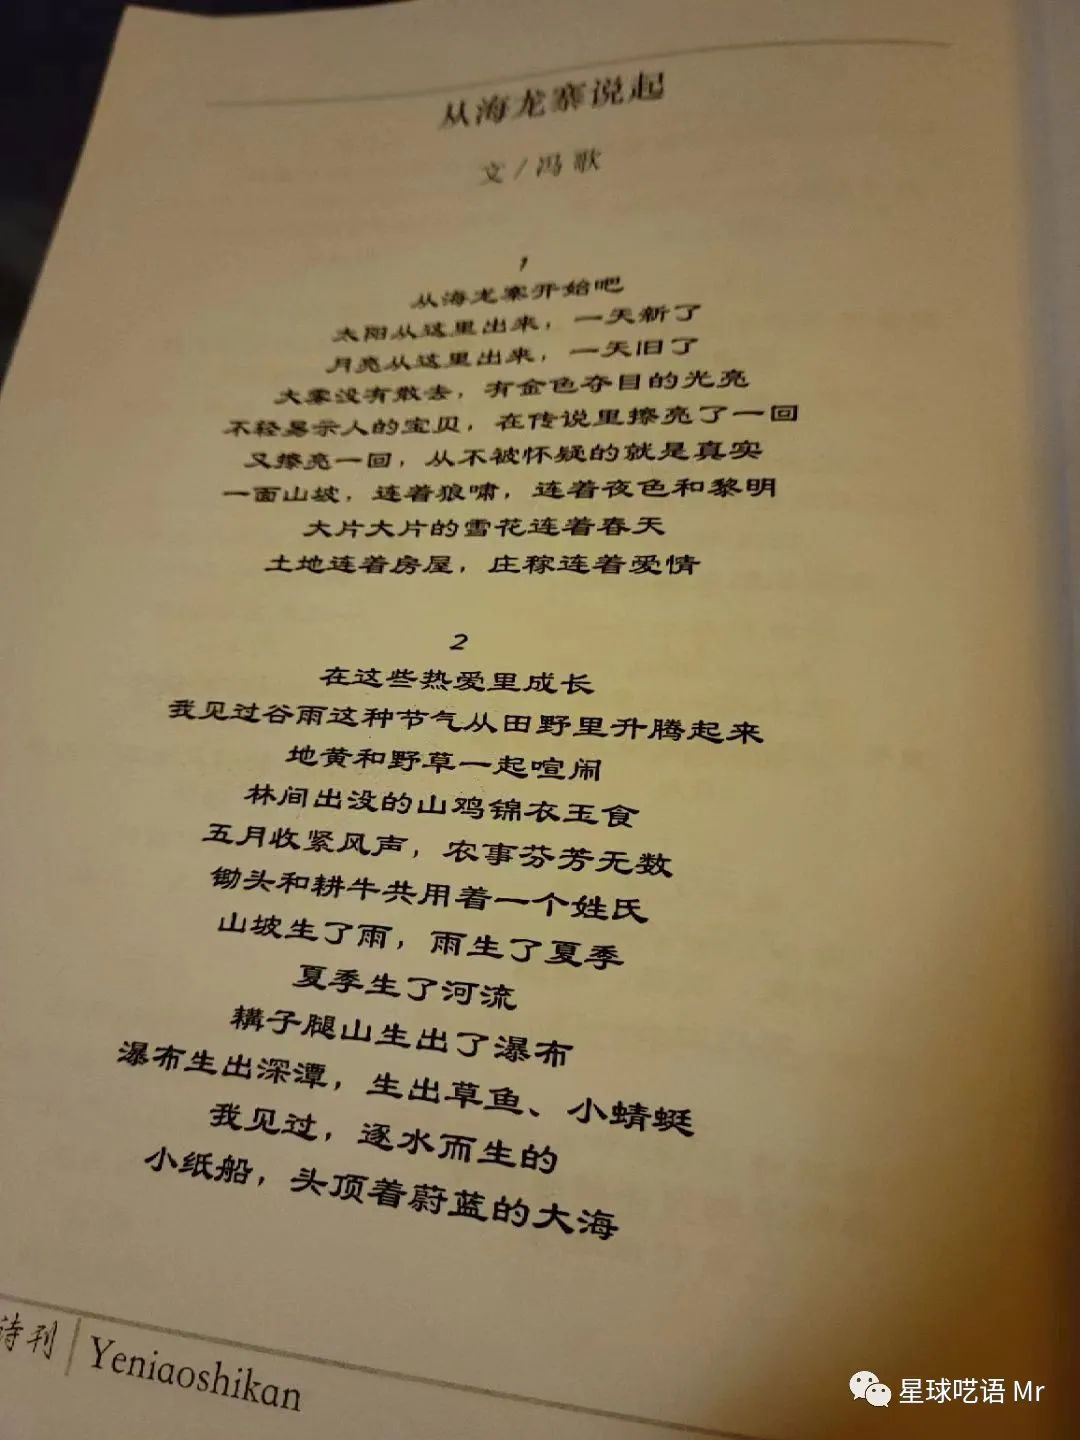 从海龙寨说起
文/冯歌
1
从海龙寨开始吧
太阳从这里出来，一天新了
月亮从这里出来，一天旧了
大雾没有散去，有金色夺目的光亮
不轻易示人的宝贝，在传说里擦亮了一回
又擦亮一回，从不被怀疑的就是真实
一面山坡，连着狼啸，连着夜色和黎明
大片大片的雪花连着春天
土地连着房屋，庄稼连着爱情
2
在这些热爱里成长
我见过谷雨这种节气从田野里升腾起来
地黄和野草一起喧闹
林间出没的山鸡锦衣玉食
五月收紧风声，农事芬芳无数
锄头和耕牛共用着一个姓氏
山坡生了雨，雨生了夏季
夏季生了河流
耩子腿山生出了瀑布
瀑布生出深潭，生出草鱼、小蜻蜓
我见过，逐水而生的
小纸船，头顶着蔚蓝的大海
诗刊 | Yeniaoshikan
星球呓语 Mr